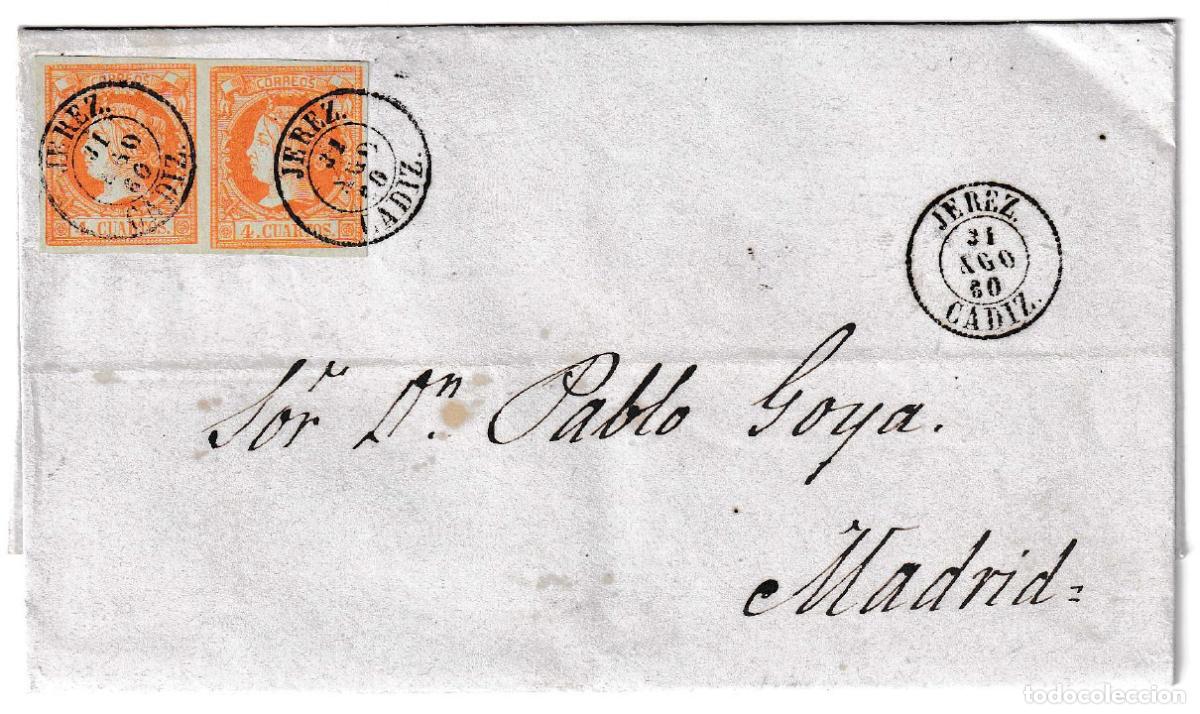 CORREOS CORREOS
4. CUARTOS. 4. CUARTOS.
JEREZ.
31
AGO
60
CADIZ.
JEREZ.
31
AGO
60
CADIZ.
JEREZ.
31
AGO
60
CADIZ.
Sor. Dn. Pablo Goya.
Madrid=
todocoleccion